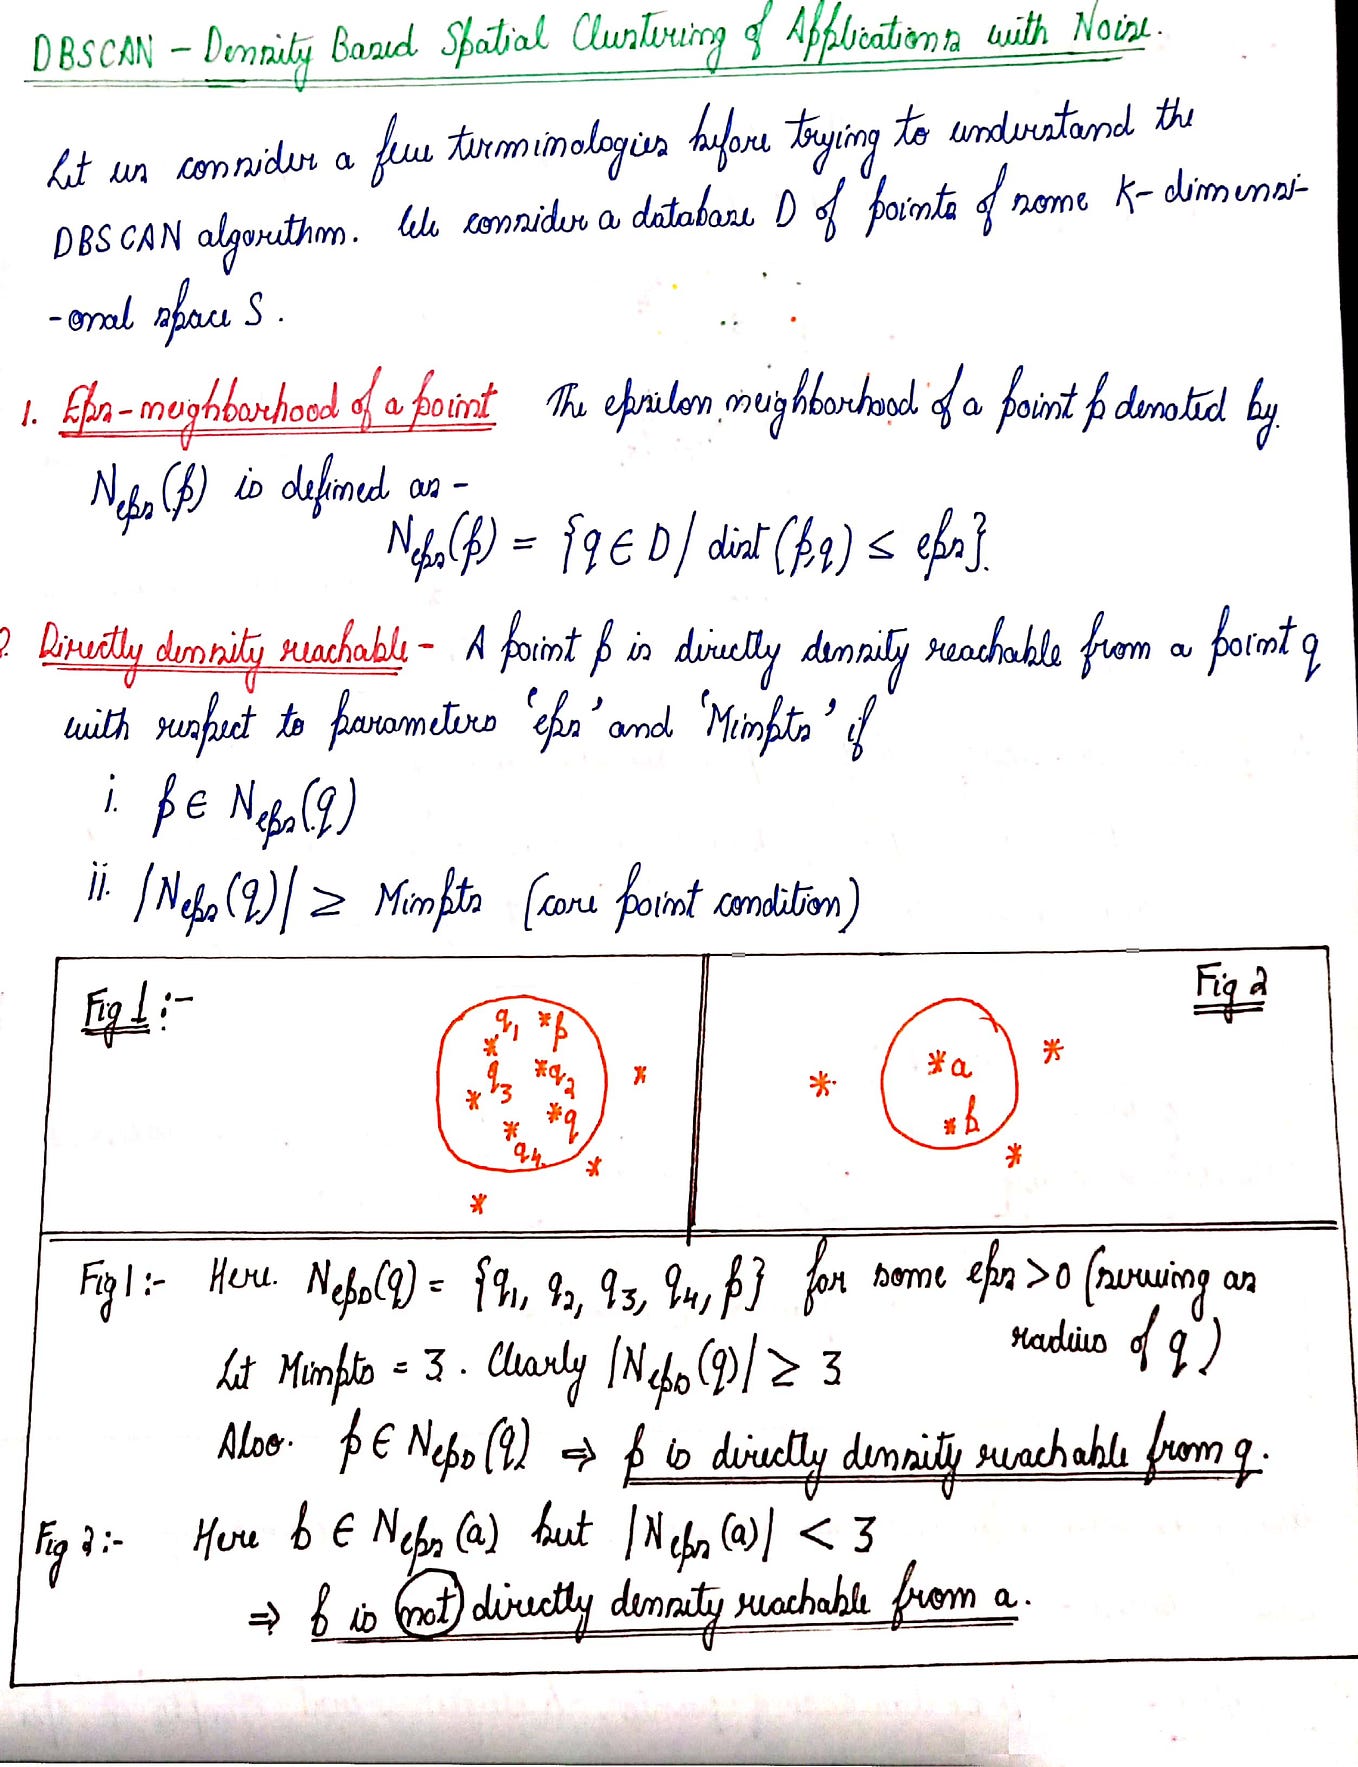 DBSCAN – Density Based Spatial Clustering of Applications with Noise.
Let us consider a few terminologies before trying to understand the
DBSCAN algorithm. We consider a database D of points of some K-dimensi-
-onal space S.
1. Eps-neighborhood of a point The epsilon neighborhood of a point p denoted by
Neps(p) is defined as -
Neps(p) = {q ∈ D / dist (p,q) ≤ eps}.
2. Directly density reachable - A point p is directly density reachable from a point q
with respect to parameters 'eps' and 'Minpts' if
i. p ∈ Neps(q)
ii. |Neps(q)| ≥ Minpts (core point condition)
Fig 1:-
q1 p
q3 q2
q
q4
Fig 2
a
b
Fig 1:- Here. Neps(q) = {q1, q2, q3, q4, p} for some eps > 0 (serving as
radius of q)
Let Minpts = 3. Clearly |Neps(q)| ≥ 3
Also. p ∈ Neps(q) ⇒ p is directly density reachable from q.
Fig 2:- Here b ∈ Neps(a) but |Neps(a)| < 3
⇒ b is not directly density reachable from a.